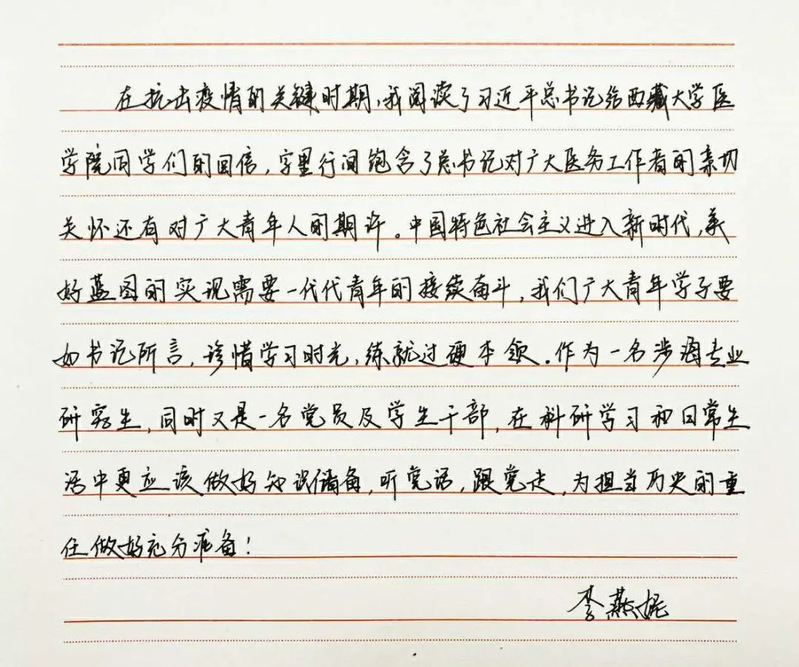 在抗击疫情的关键时期，我阅读了习近平总书记给西藏大学医
学院同学们的回信，字里行间饱含了总书记对广大医务工作者的亲切
关怀还有对广大青年人的期许。中国特色社会主义进入新时代，美
好蓝图的实现需要一代代青年的接续奋斗，我们广大青年学子要
如书记所言，珍惜学习时光，练就过硬本领。作为一名涉海专业
研究生，同时又是一名党员及学生干部，在科研学习和日常生
活中更应该做好知识储备，听党话，跟党走，为担当历史的重
任做好充分准备！
李燕